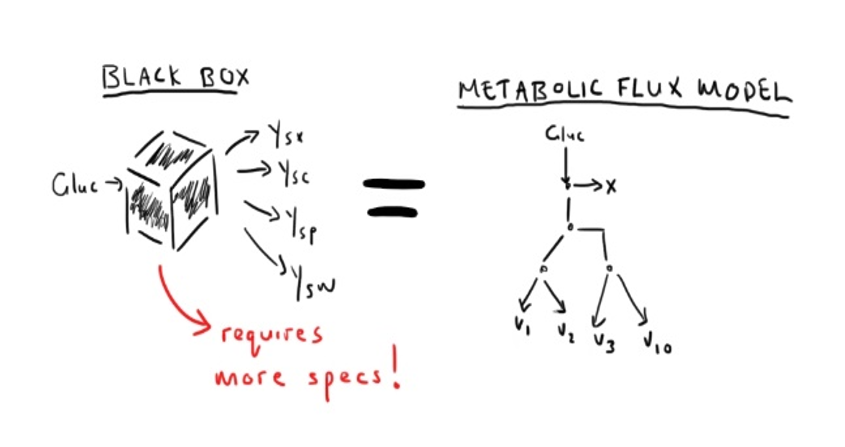 BLACK BOX
Gluc
Ysx
Ysc
Ysp
Ysw
requires
more specs!
=
METABOLIC FLUX MODEL
Gluc
X
V1
V2
V3
V10